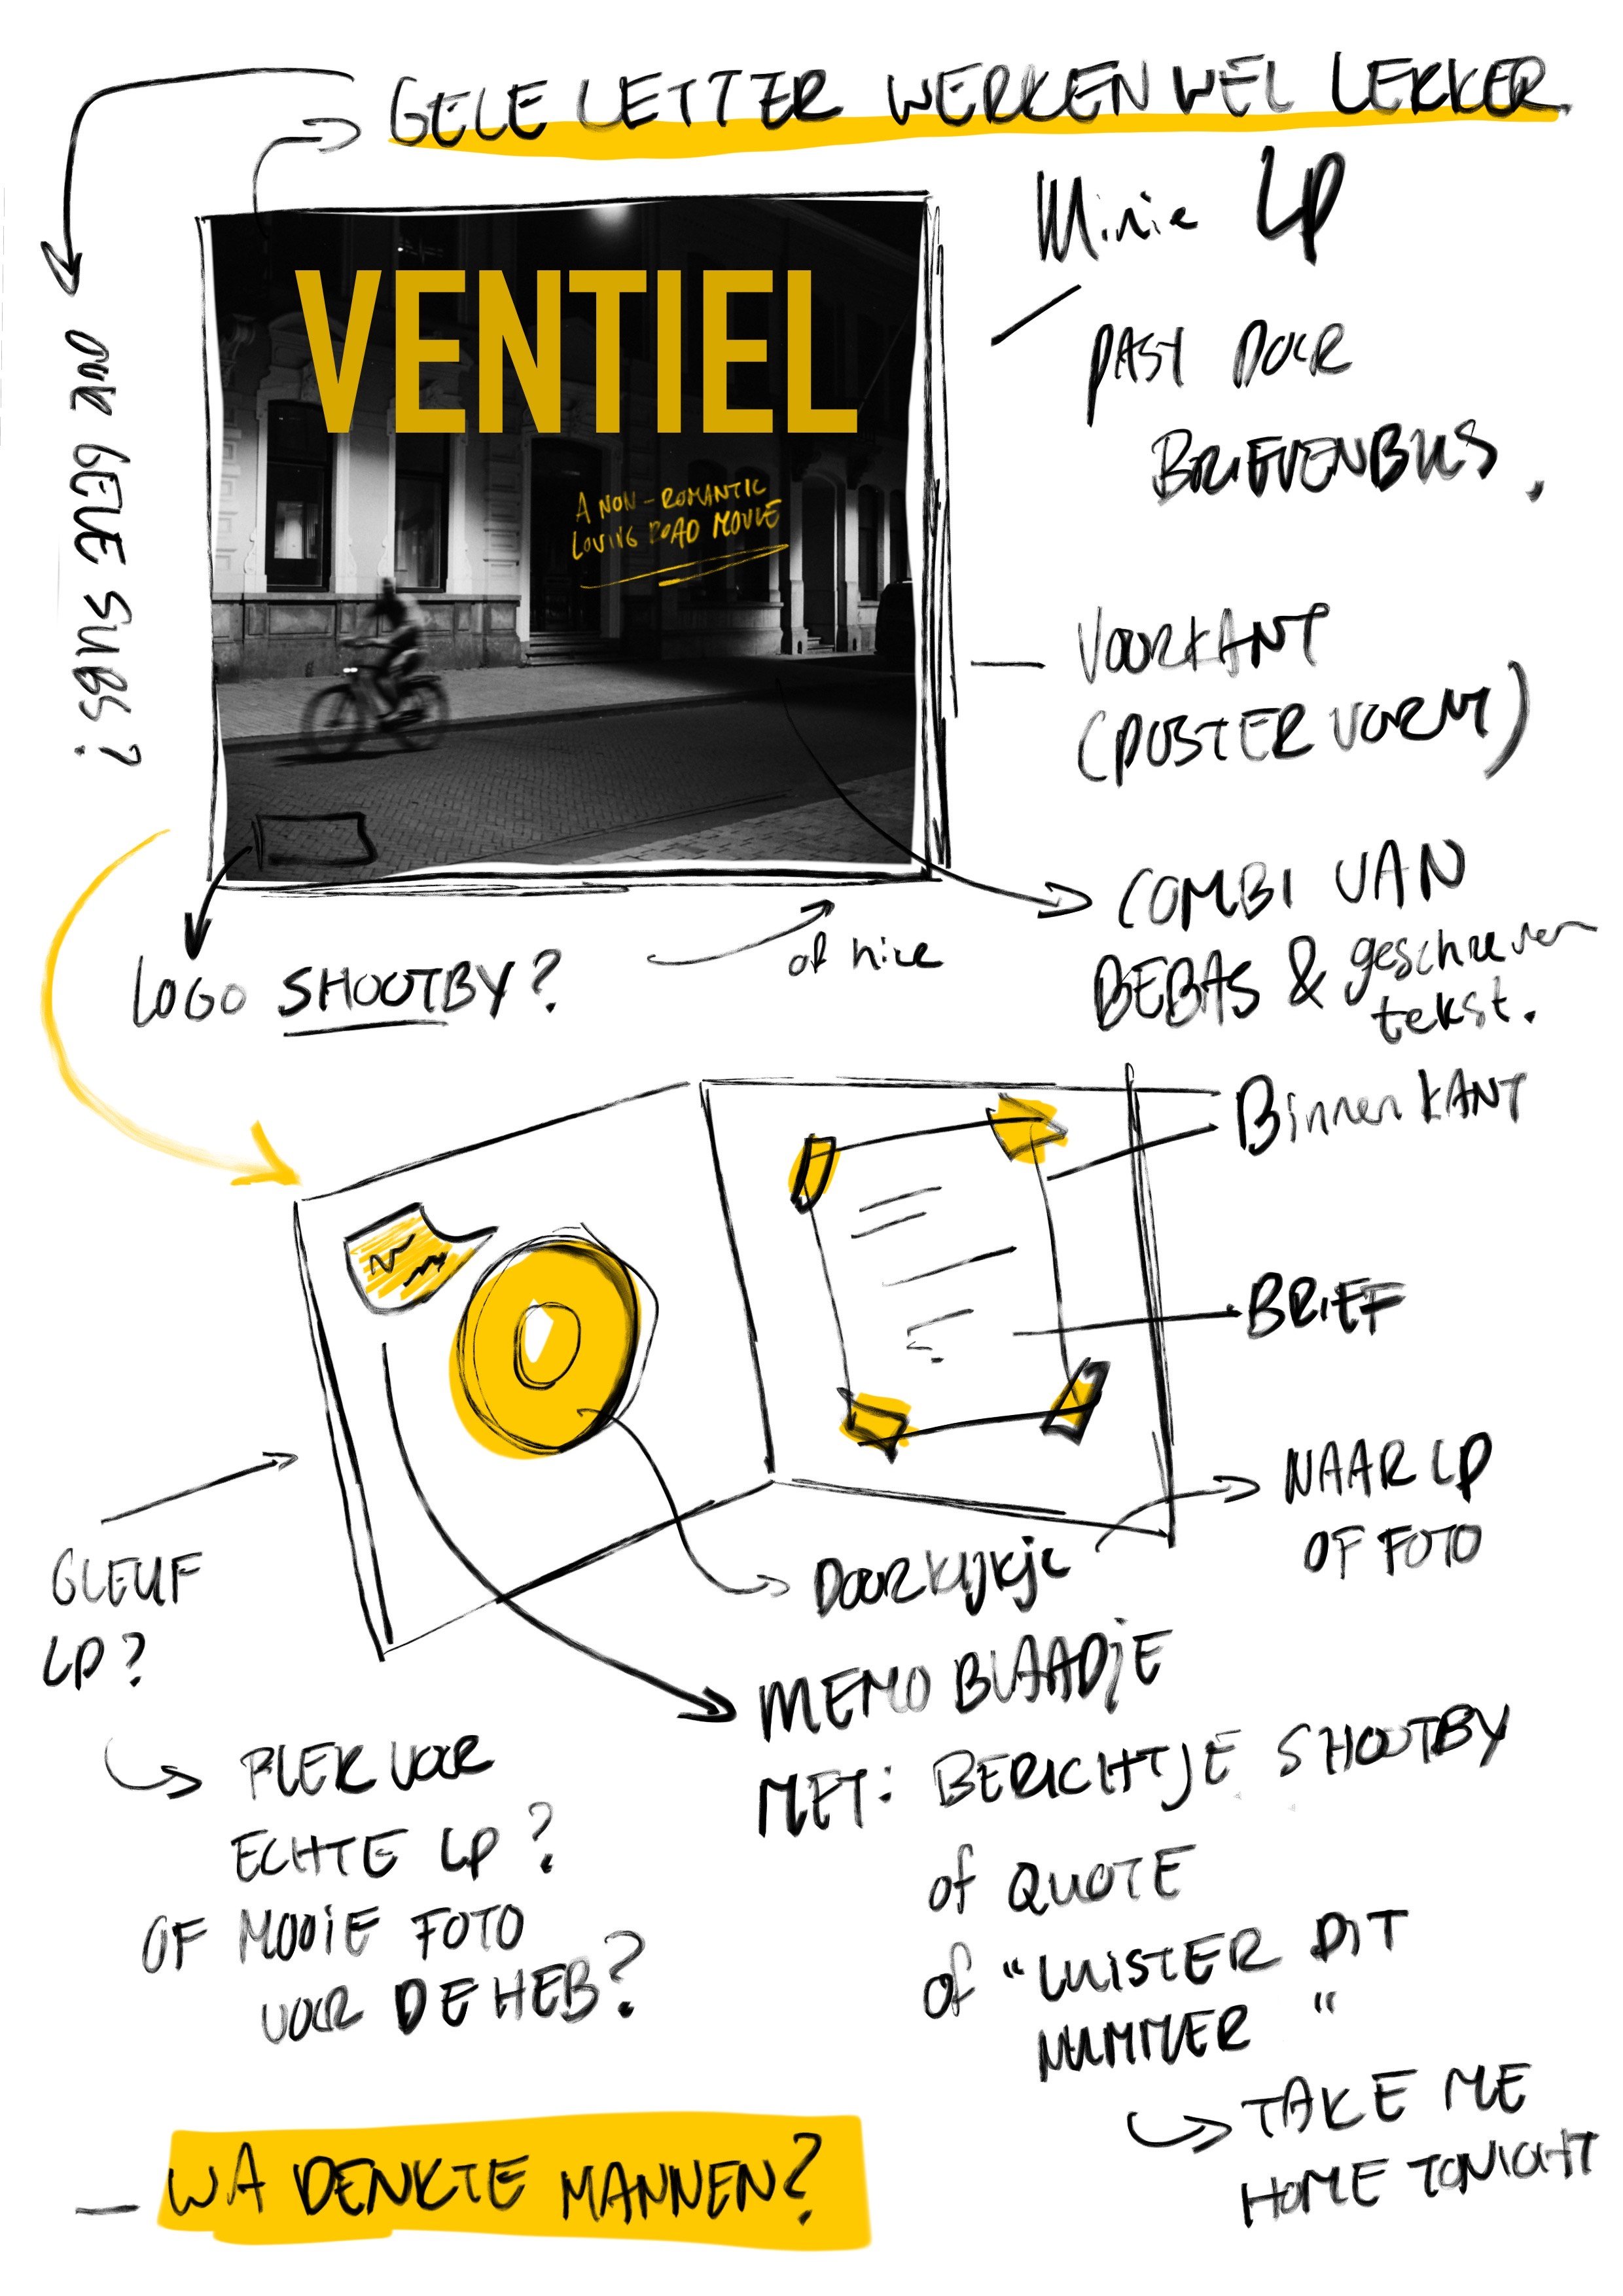 GELE LETTER WERKEN WEL LEKKER
Minie LP
PAST DOOR
BRIEVENBUS.
OOK GELE SUBS?
VENTIEL
A NON-ROMANTIC
LOVING ROAD MOVIE
VOORKANT
(POSTER VORM)
COMBI VAN
BEBAS & geschreven
tekst.
LOGO SHOOTBY?
of hire
BinnenKANT
BRIEF
NAAR LP
OF FOTO
GLEUF
LP?
DoorKijkje
PLEK VOOR
ECHTE LP?
OF MOOIE FOTO
VOOR DE HEB?
MEMO BLAADjE
MET: BERICHTJE SHOOTBY
of QUOTE
of "LUISTER DIT
NUMMER"
TAKE ME
HOME TONIGHT
- WA DENKTE MANNEN?